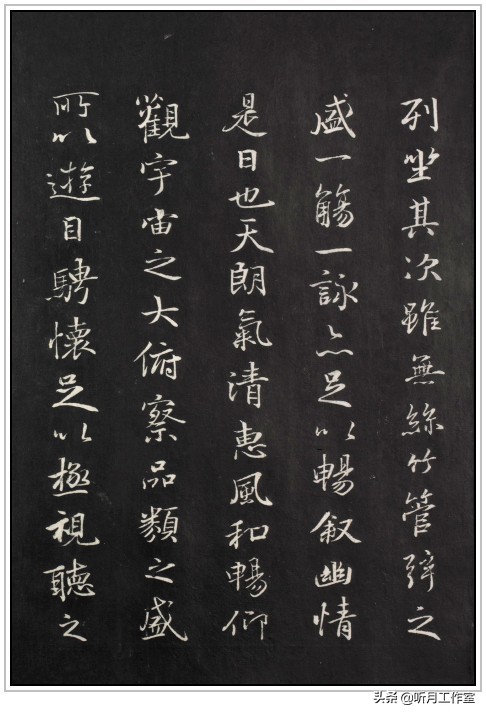 列坐其次雖無絲竹管弦之
盛一觴一詠亦足以暢敘幽情
是日也天朗氣清惠風和暢仰
觀宇宙之大俯察品類之盛
所以遊目騁懷足以極視聽之
头条 @听月工作室